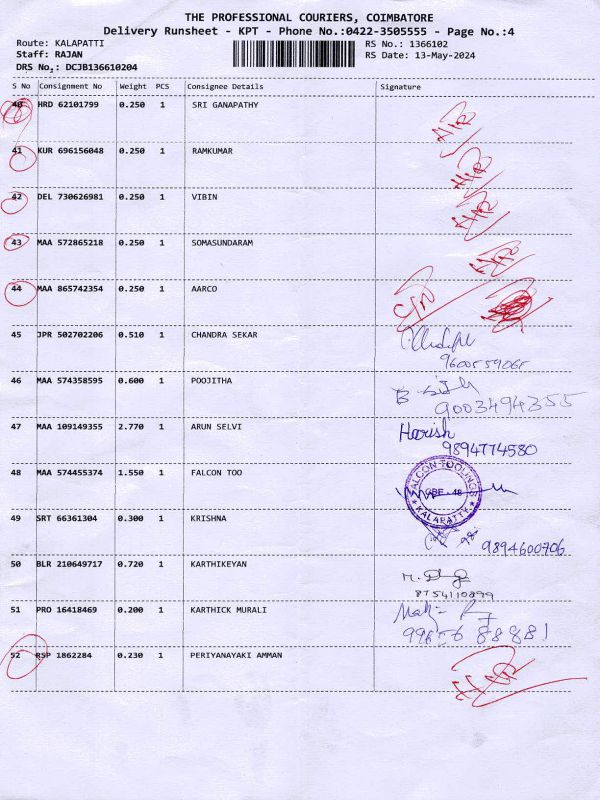 THE PROFESSIONAL COURIERS, COIMBATORE
Delivery Runsheet - KPT - Phone No.:0422-3505555 - Page No.:4
Route: KALAPATTI RS No.: 1366102
Staff: RAJAN RS Date: 13-May-2024
DRS No.: DCJB136610204
S No Consignment No Weight PCS Consignee Details Signature
40 HRD 62101799 0.250 1 SRI GANAPATHY
41 KUR 696156048 0.250 1 RAMKUMAR
42 DEL 730626981 0.250 1 VIBIN
43 MAA 572865218 0.250 1 SOMASUNDARAM
44 MAA 865742354 0.250 1 AARCO
45 JPR 502702206 0.510 1 CHANDRA SEKAR
46 MAA 574358595 0.600 1 POOJITHA
9003494355
47 MAA 109149355 2.770 1 ARUN SELVI Harish
9894774580
48 MAA 574455374 1.550 1 FALCON TOO
FALCON TOOLINGS
CBE - 48
KALAPATTY
49 SRT 66361304 0.300 1 KRISHNA
9894600706
50 BLR 210649717 0.720 1 KARTHIKEYAN
8754110899
51 PRO 16418469 0.200 1 KARTHICK MURALI
52 RSP 1862284 0.230 1 PERIYANAYAKI AMMAN